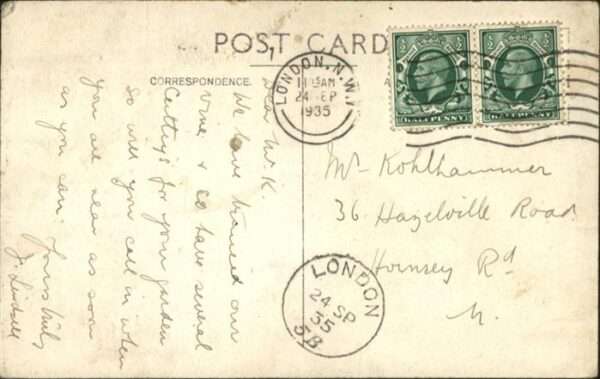 POST CARD
CORRESPONDENCE.
A
LONDON. N.W.1
11 15 AM
24 SEP
1935
HALFPENNY
HALFPENNY
Dear Mr K.
We have trimmed our
vine & so have several
Cuttings for your garden
so will you call in when
you are near as soon
as you can. Yours truly
J.
Mr Kohlhammer
36 Hazelville Road
Hornsey Rd
N.
LONDON
24 SP
35
5B